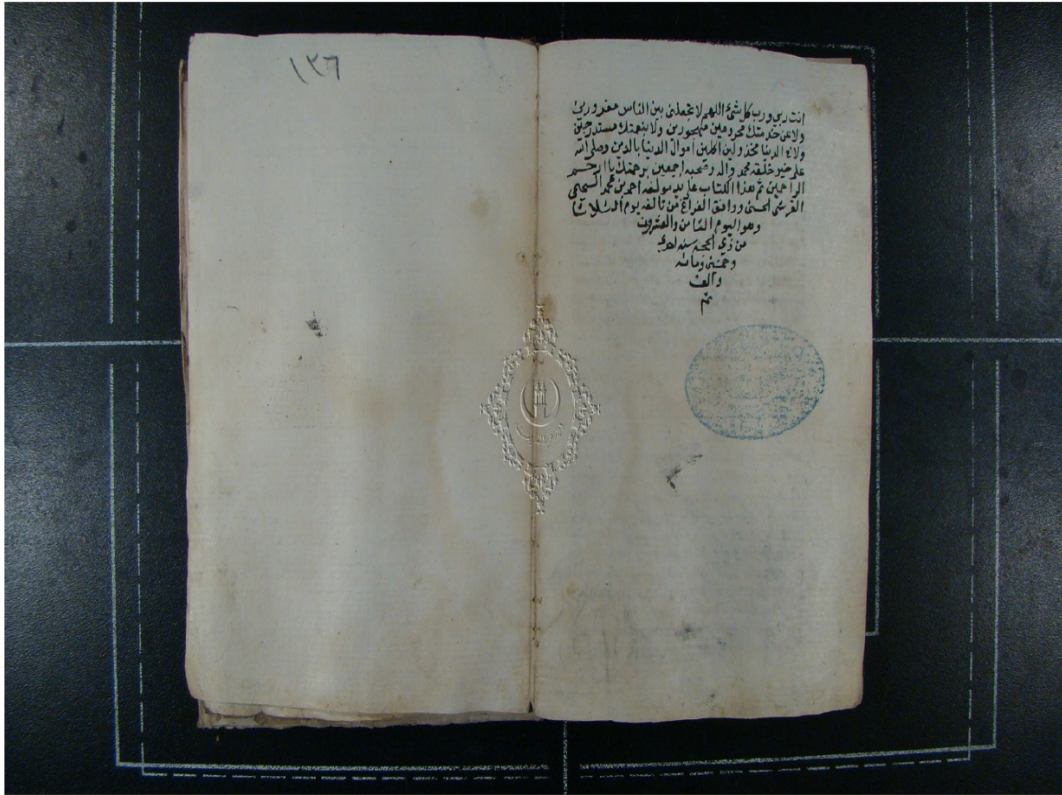 انت ربي ورب كل شئ اللهم لا تجعلنى بين الناس مغرورين
ولا عن خدمتك محرومين مهجورين ولا بنعمتك مستدرجين
ولا في الدنيا مخذولين اكلين اموال الدنيا بالدين وصلى الله
على خير خلقه محمد واله وصحبه اجمعين برحمتك يا ارحم
الراحمين تم هذا الكتاب على يد مولفه احمد بن محمد السحيمى
القرشى الحسنى ووافق الفراغ من تاليفه يوم الثلاثا
وهو اليوم الثامن والعشرون
من ذي الحجة سنه احدى
وخمسين ومائه
والف
تم
١٣٦